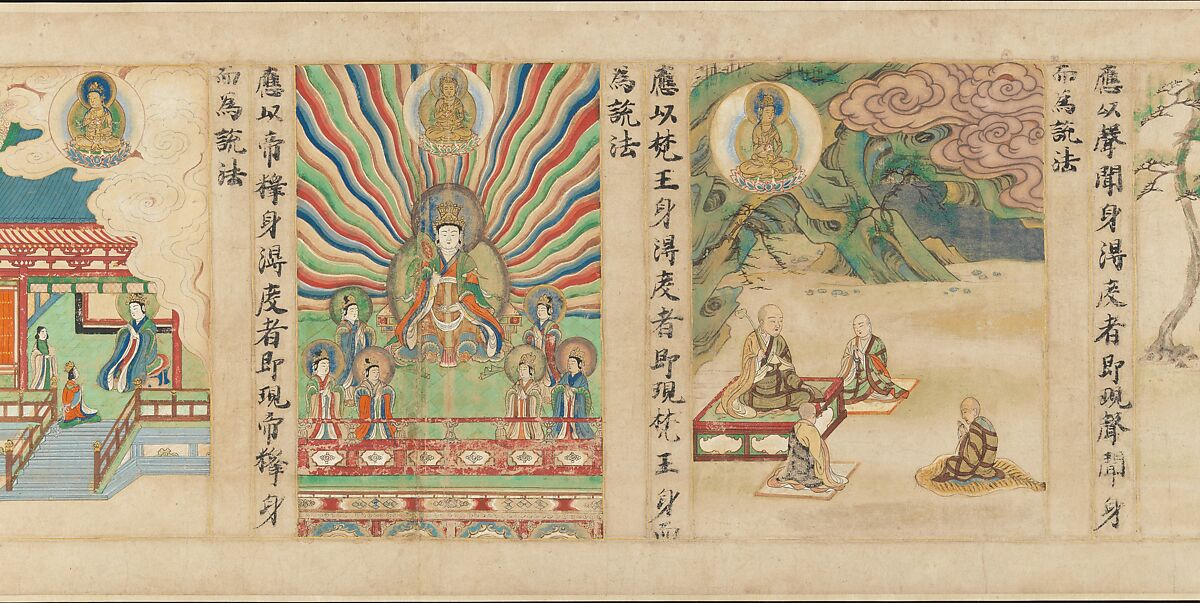 應以聲聞身得度者即現聲聞身
而為説法
應以梵王身得度者即現梵王身而
為説法
應以帝釋身得度者即現帝釋身
而為説法